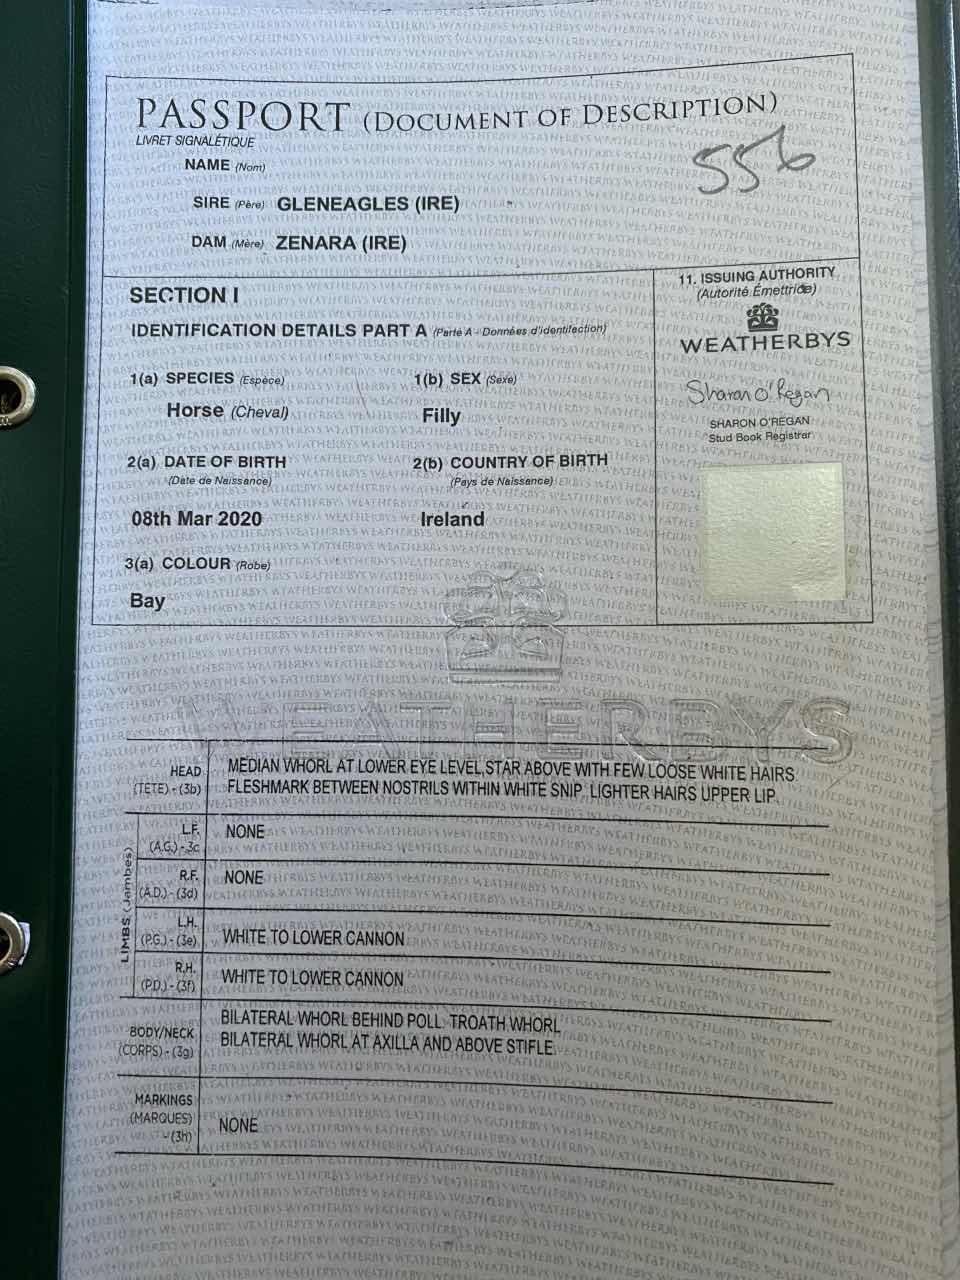 PASSPORT (DOCUMENT OF DESCRIPTION)
LIVRET SIGNALÉTIQUE
556
NAME (Nom)
SIRE (Père) GLENEAGLES (IRE)
DAM (Mère) ZENARA (IRE)
SECTION I
IDENTIFICATION DETAILS PART A (Partie A - Données d'identifection)
1(a) SPECIES (Espèce) 1(b) SEX (Sexe)
Horse (Cheval) Filly
2(a) DATE OF BIRTH 2(b) COUNTRY OF BIRTH
(Date de Naissance) (Pays de Naissance)
08th Mar 2020 Ireland
3(a) COLOUR (Robe)
Bay
11. ISSUING AUTHORITY
(Autorité Émettride)
WEATHERBYS
Sharon O'Regan
SHARON O'REGAN
Stud Book Registrar
WEATHERBYS
HEAD (TETE) - (3b) MEDIAN WHORL AT LOWER EYE LEVEL,STAR ABOVE WITH FEW LOOSE WHITE HAIRS.
FLESHMARK BETWEEN NOSTRILS WITHIN WHITE SNIP. LIGHTER HAIRS UPPER LIP.
LIMBS (Jambes)
L.F. NONE
(A.G.) - 3c
R.F. NONE
(A.D.) - (3d)
L.H.
(P.G.) - (3e) WHITE TO LOWER CANNON
R.H.
(P.D.) - (3f) WHITE TO LOWER CANNON
BODY/NECK BILATERAL WHORL BEHIND POLL. TROATH WHORL
(CORPS) - (3g) BILATERAL WHORL AT AXILLA AND ABOVE STIFLE.
MARKINGS
(MARQUES) NONE
- (3h)